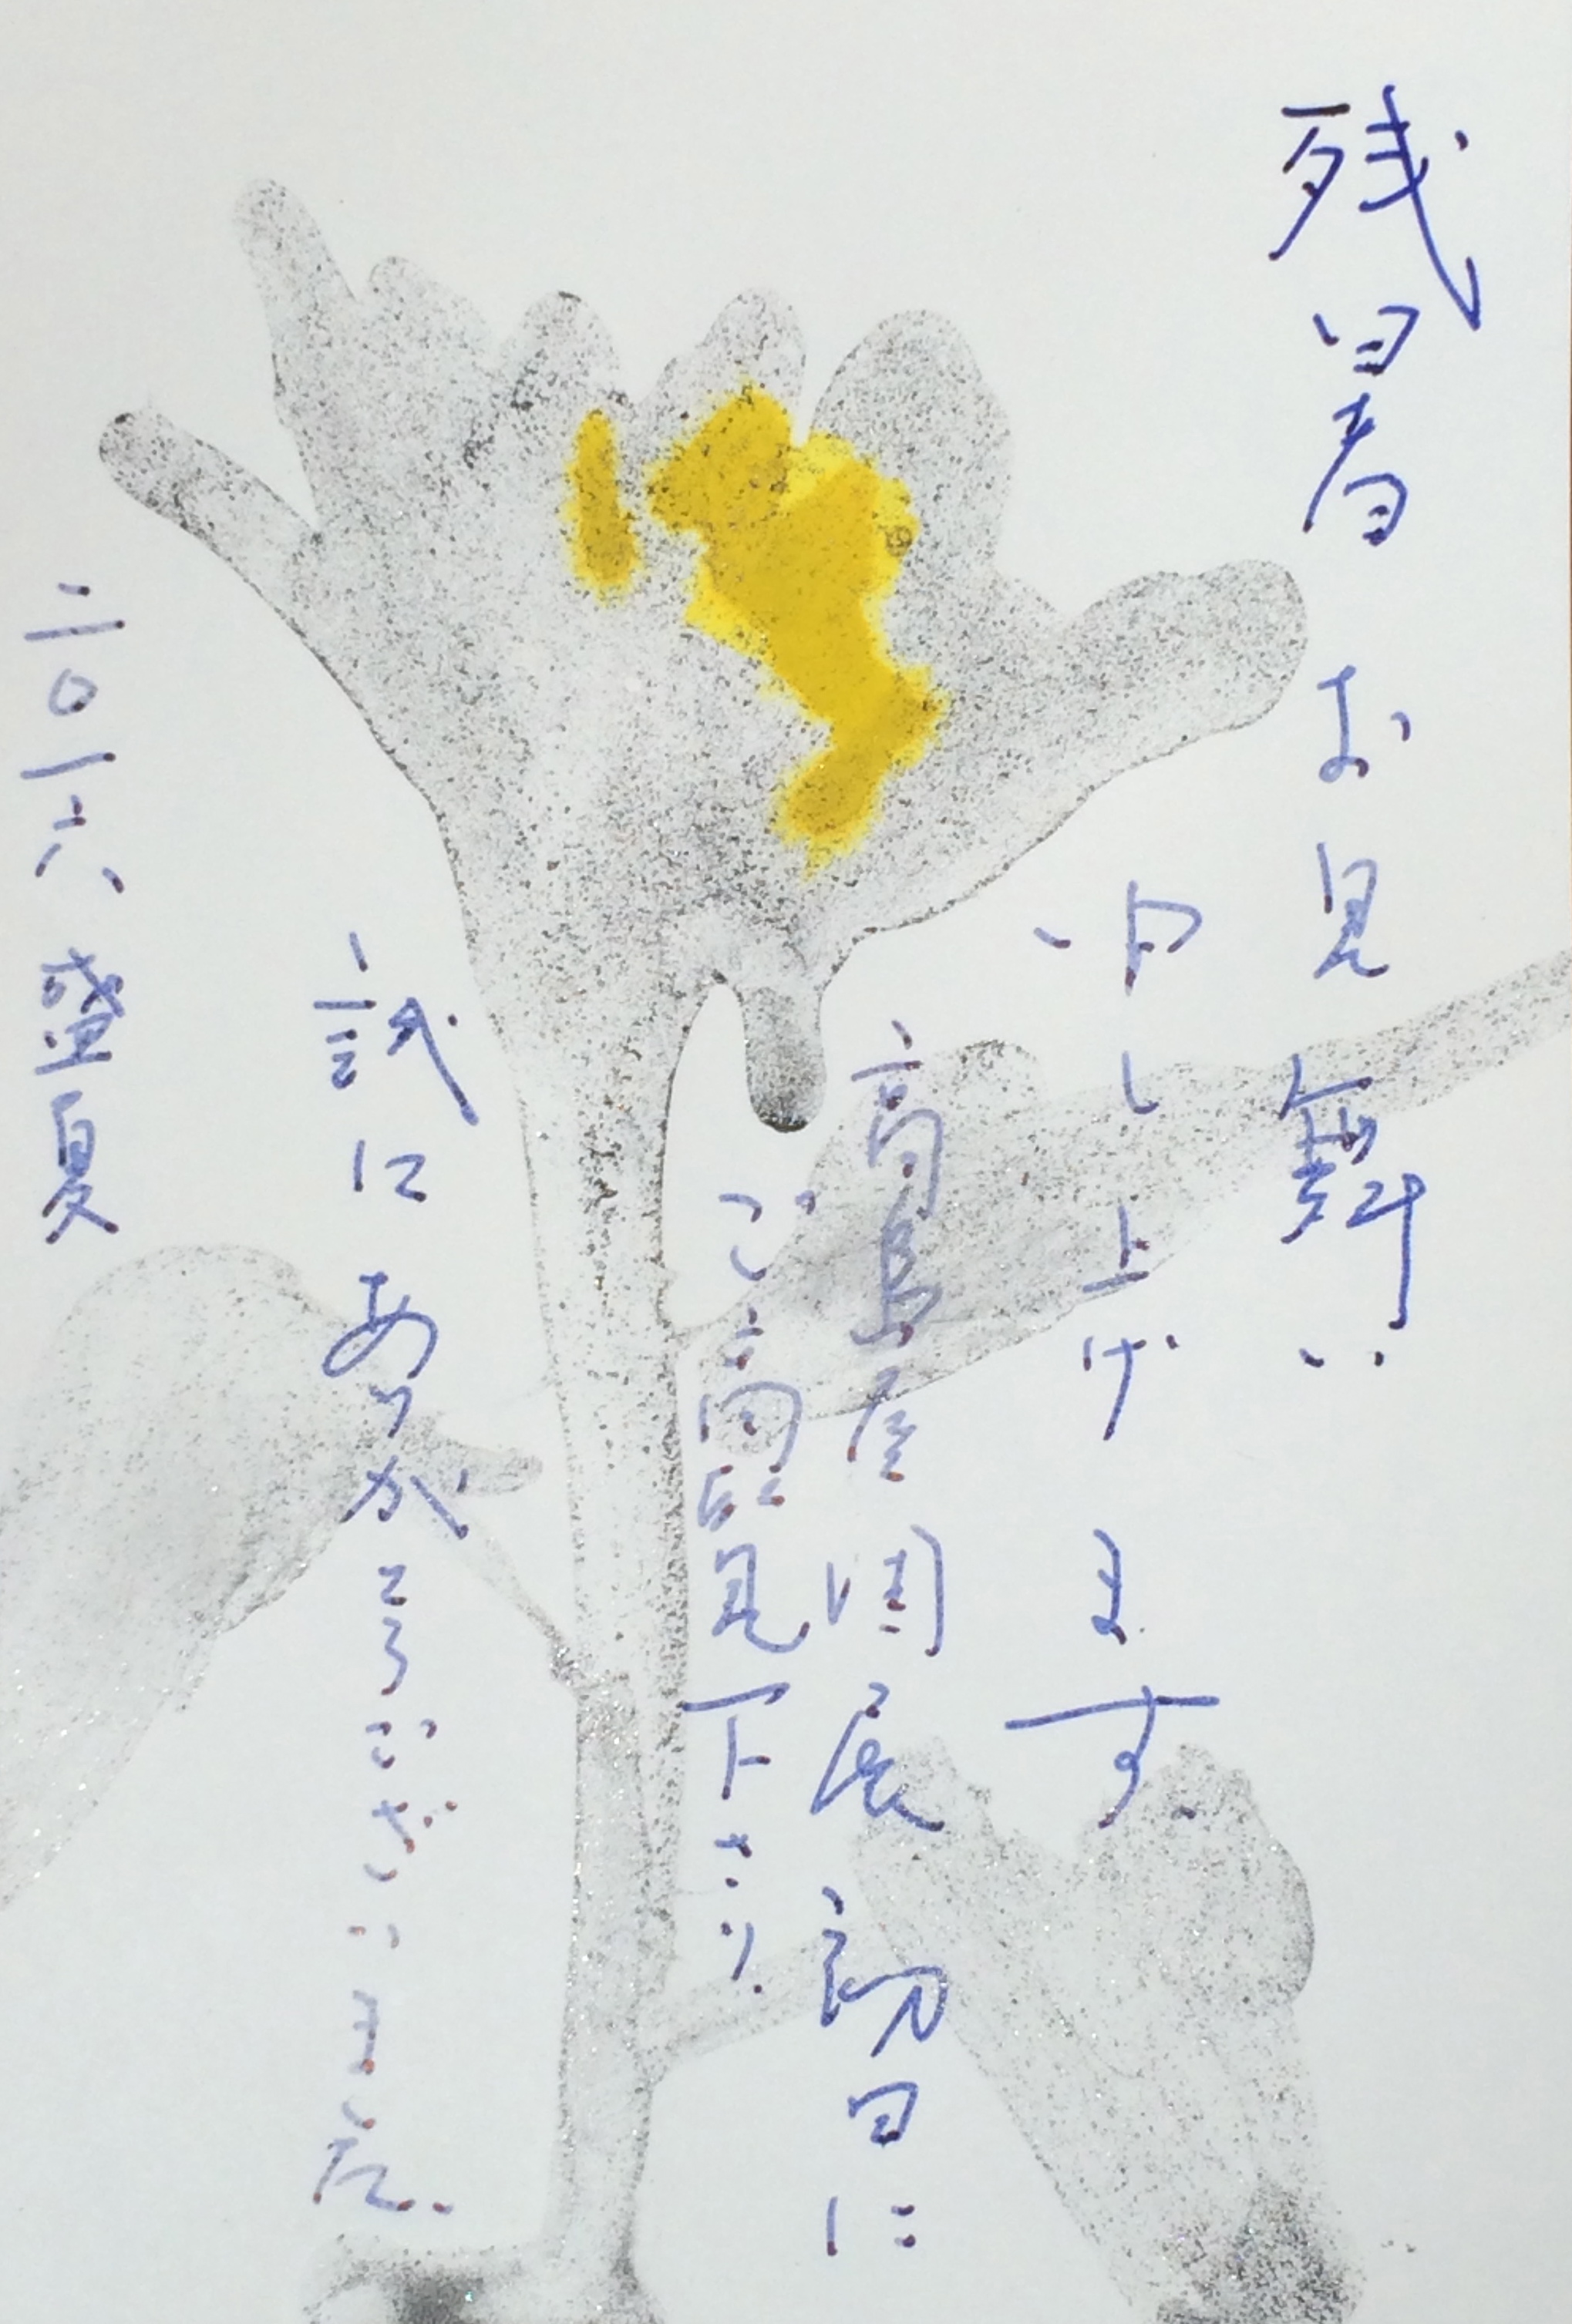 残暑お見舞い
申し上げます
高島屋 個展 初日に
ご高覧下さり
誠にありがとうございました
二〇一六 盛夏